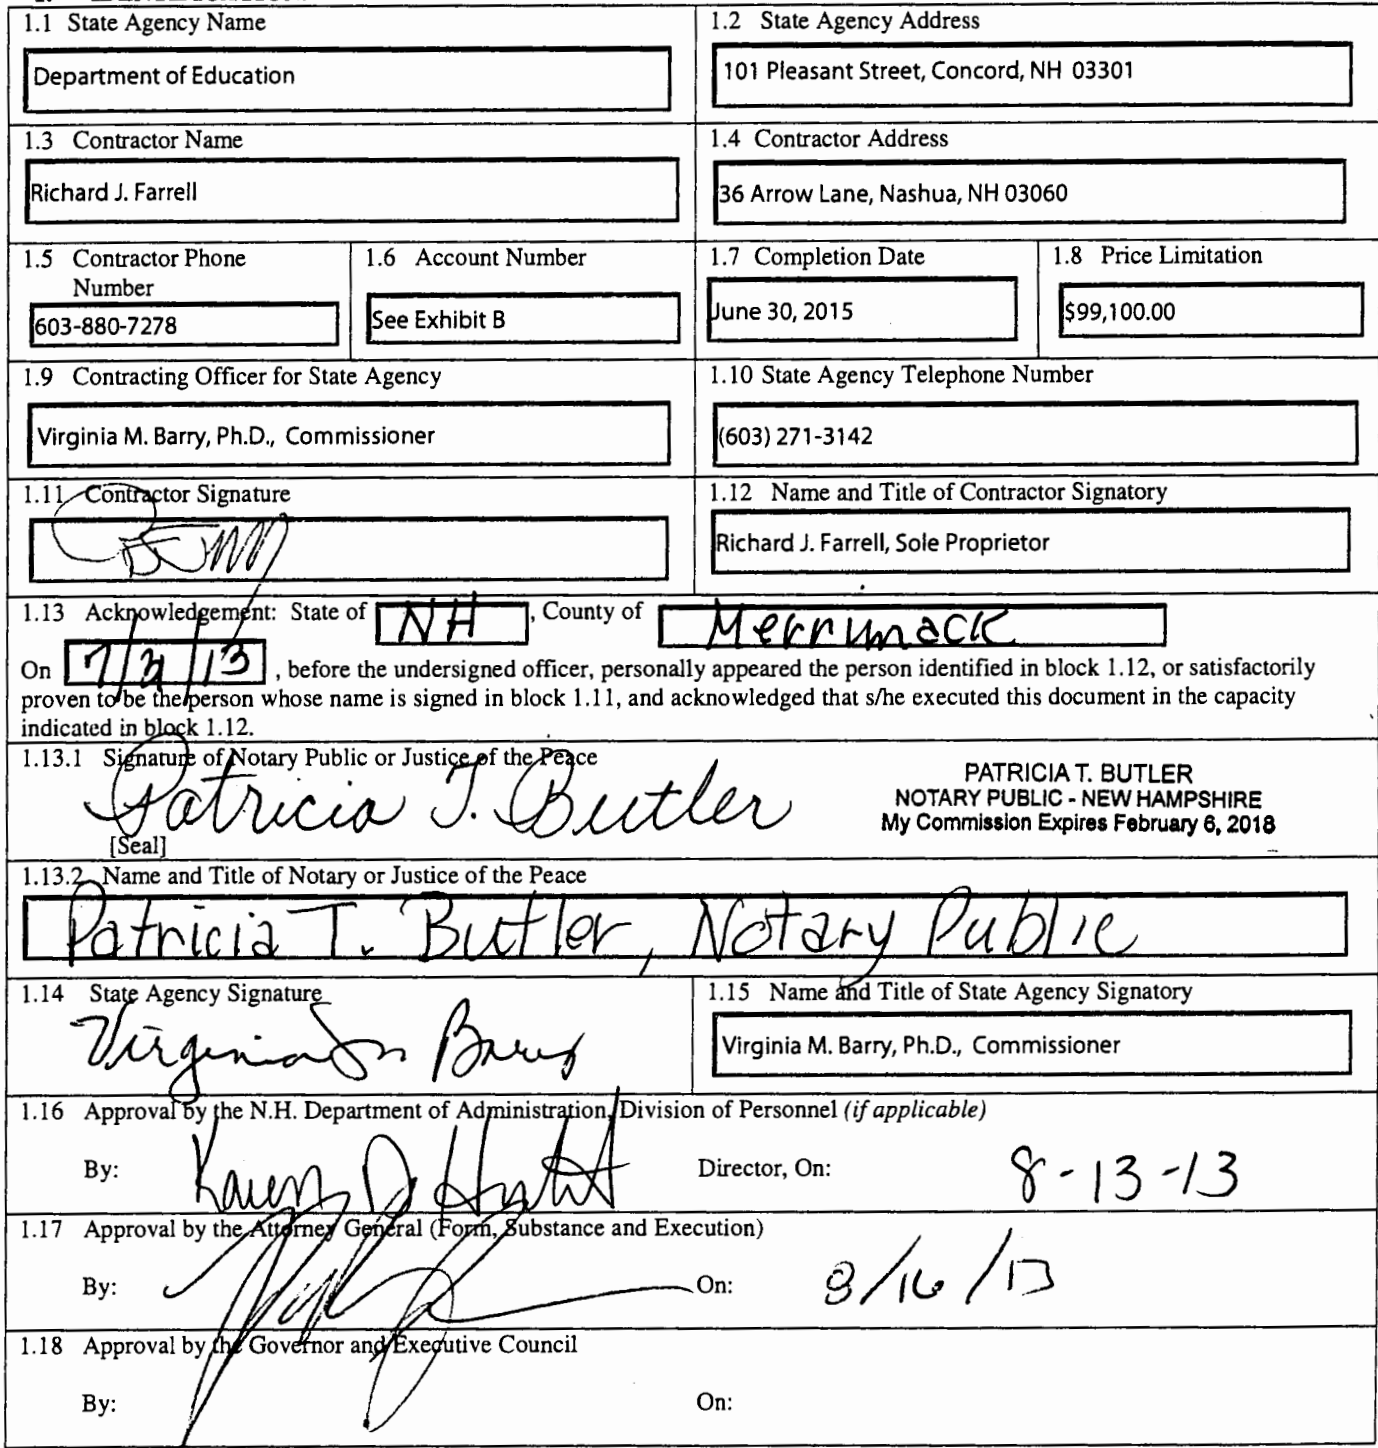 1.1 State Agency Name
Department of Education
1.2 State Agency Address
101 Pleasant Street, Concord, NH 03301
1.3 Contractor Name
Richard J. Farrell
1.4 Contractor Address
36 Arrow Lane, Nashua, NH 03060
1.5 Contractor Phone
Number
603-880-7278
1.6 Account Number
See Exhibit B
1.7 Completion Date
June 30, 2015
1.8 Price Limitation
$99,100.00
1.9 Contracting Officer for State Agency
Virginia M. Barry, Ph.D., Commissioner
1.10 State Agency Telephone Number
(603) 271-3142
1.11 Contractor Signature
1.12 Name and Title of Contractor Signatory
Richard J. Farrell, Sole Proprietor
1.13 Acknowledgement: State of NH, County of Merrimack
On 7/ /13, before the undersigned officer, personally appeared the person identified in block 1.12, or satisfactorily
proven to be the person whose name is signed in block 1.11, and acknowledged that s/he executed this document in the capacity
indicated in block 1.12.
1.13.1 Signature of Notary Public or Justice of the Peace
Patricia T. Butler
[Seal]
PATRICIA T. BUTLER
NOTARY PUBLIC - NEW HAMPSHIRE
My Commission Expires February 6, 2018
1.13.2 Name and Title of Notary or Justice of the Peace
Patricia T. Butler, Notary Public
1.14 State Agency Signature
Virginia M Barry
1.15 Name and Title of State Agency Signatory
Virginia M. Barry, Ph.D., Commissioner
1.16 Approval by the N.H. Department of Administration, Division of Personnel (if applicable)
By: Karen D Director, On: 8-13-13
1.17 Approval by the Attorney General (Form, Substance and Execution)
By: On: 8/16/13
1.18 Approval by the Governor and Executive Council
By: On: